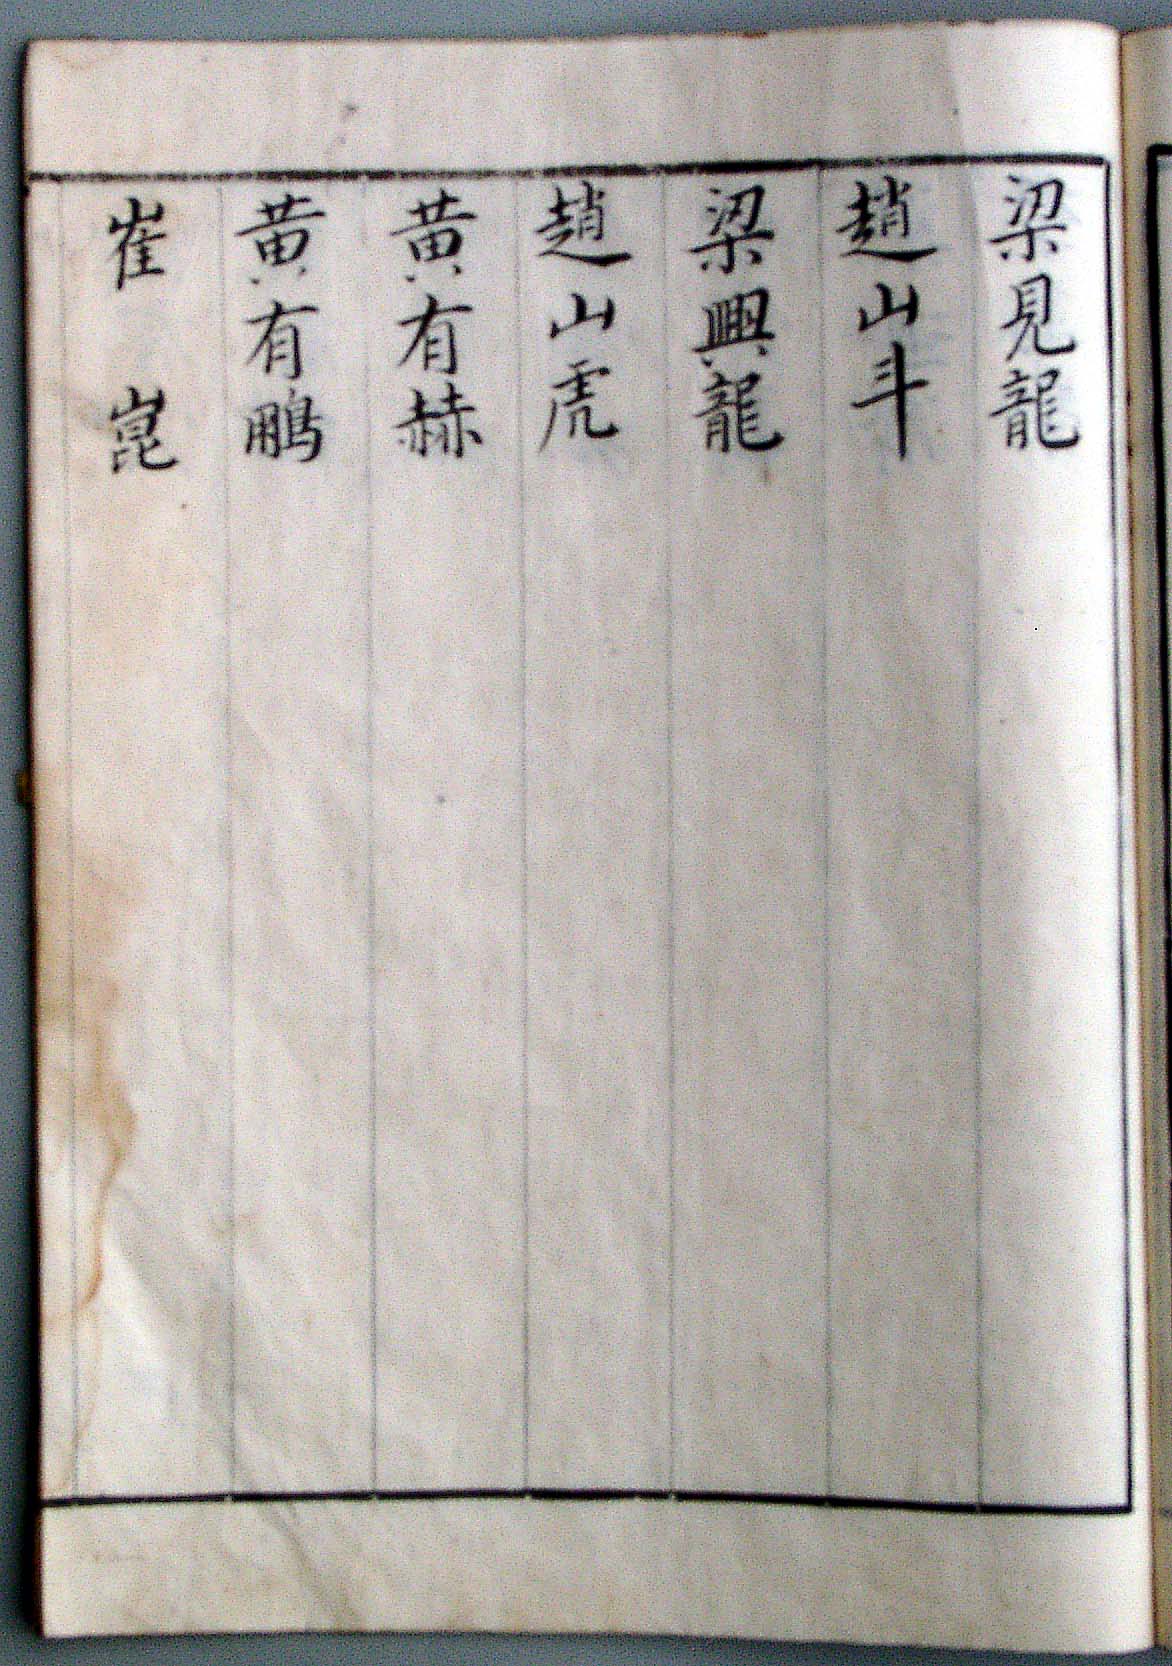 梁見龍
趙山斗
梁興龍
趙山虎
黄有赫
黄有鵬
崔崑